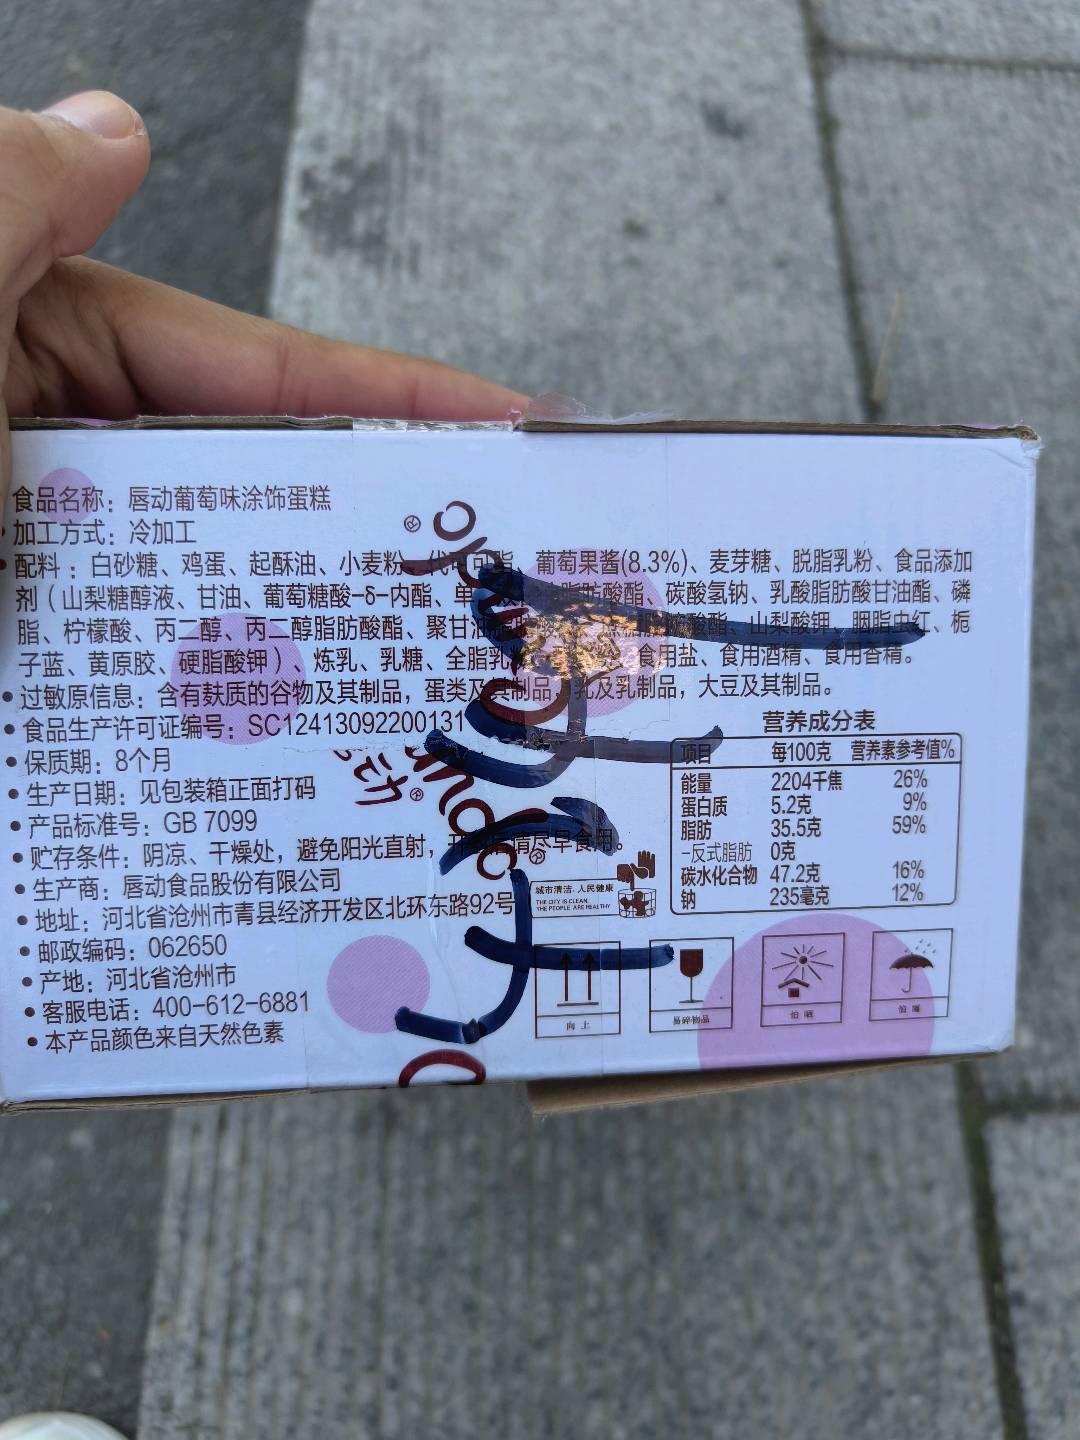 食品名称：唇动葡萄味涂饰蛋糕
加工方式：冷加工
配料：白砂糖、鸡蛋、起酥油、小麦粉、代可可脂、葡萄果酱(8.3%)、麦芽糖、脱脂乳粉、食品添加
剂（山梨糖醇液、甘油、葡萄糖酸-δ-内酯、单 脂肪酸酯、碳酸氢钠、乳酸脂肪酸甘油酯、磷
脂、柠檬酸、丙二醇、丙二醇脂肪酸酯、聚甘油 山梨酸钾、胭脂虫红、栀
子蓝、黄原胶、硬脂酸钾）、炼乳、乳糖、全脂乳 食用盐、食用酒精、食用香精。
• 过敏原信息：含有麸质的谷物及其制品，蛋类及其制品，乳及乳制品，大豆及其制品。
• 食品生产许可证编号：SC12413092200131
• 保质期：8个月
• 生产日期：见包装箱正面打码
• 产品标准号：GB 7099
• 贮存条件：阴凉、干燥处，避免阳光直射， 请尽早食用。
• 生产商：唇动食品股份有限公司
• 地址：河北省沧州市青县经济开发区北环东路92号
• 邮政编码：062650
• 产地：河北省沧州市
• 客服电话：400-612-6881
• 本产品颜色来自天然色素
营养成分表
项目 每100克 营养素参考值%
能量 2204千焦 26%
蛋白质 5.2克 9%
脂肪 35.5克 59%
-反式脂肪 0克
碳水化合物 47.2克 16%
钠 235毫克 12%
城市清洁，人民健康
THE CITY IS CLEAN,
THE PEOPLE ARE HEALTHY
向上
易碎物品
怕晒
怕雨